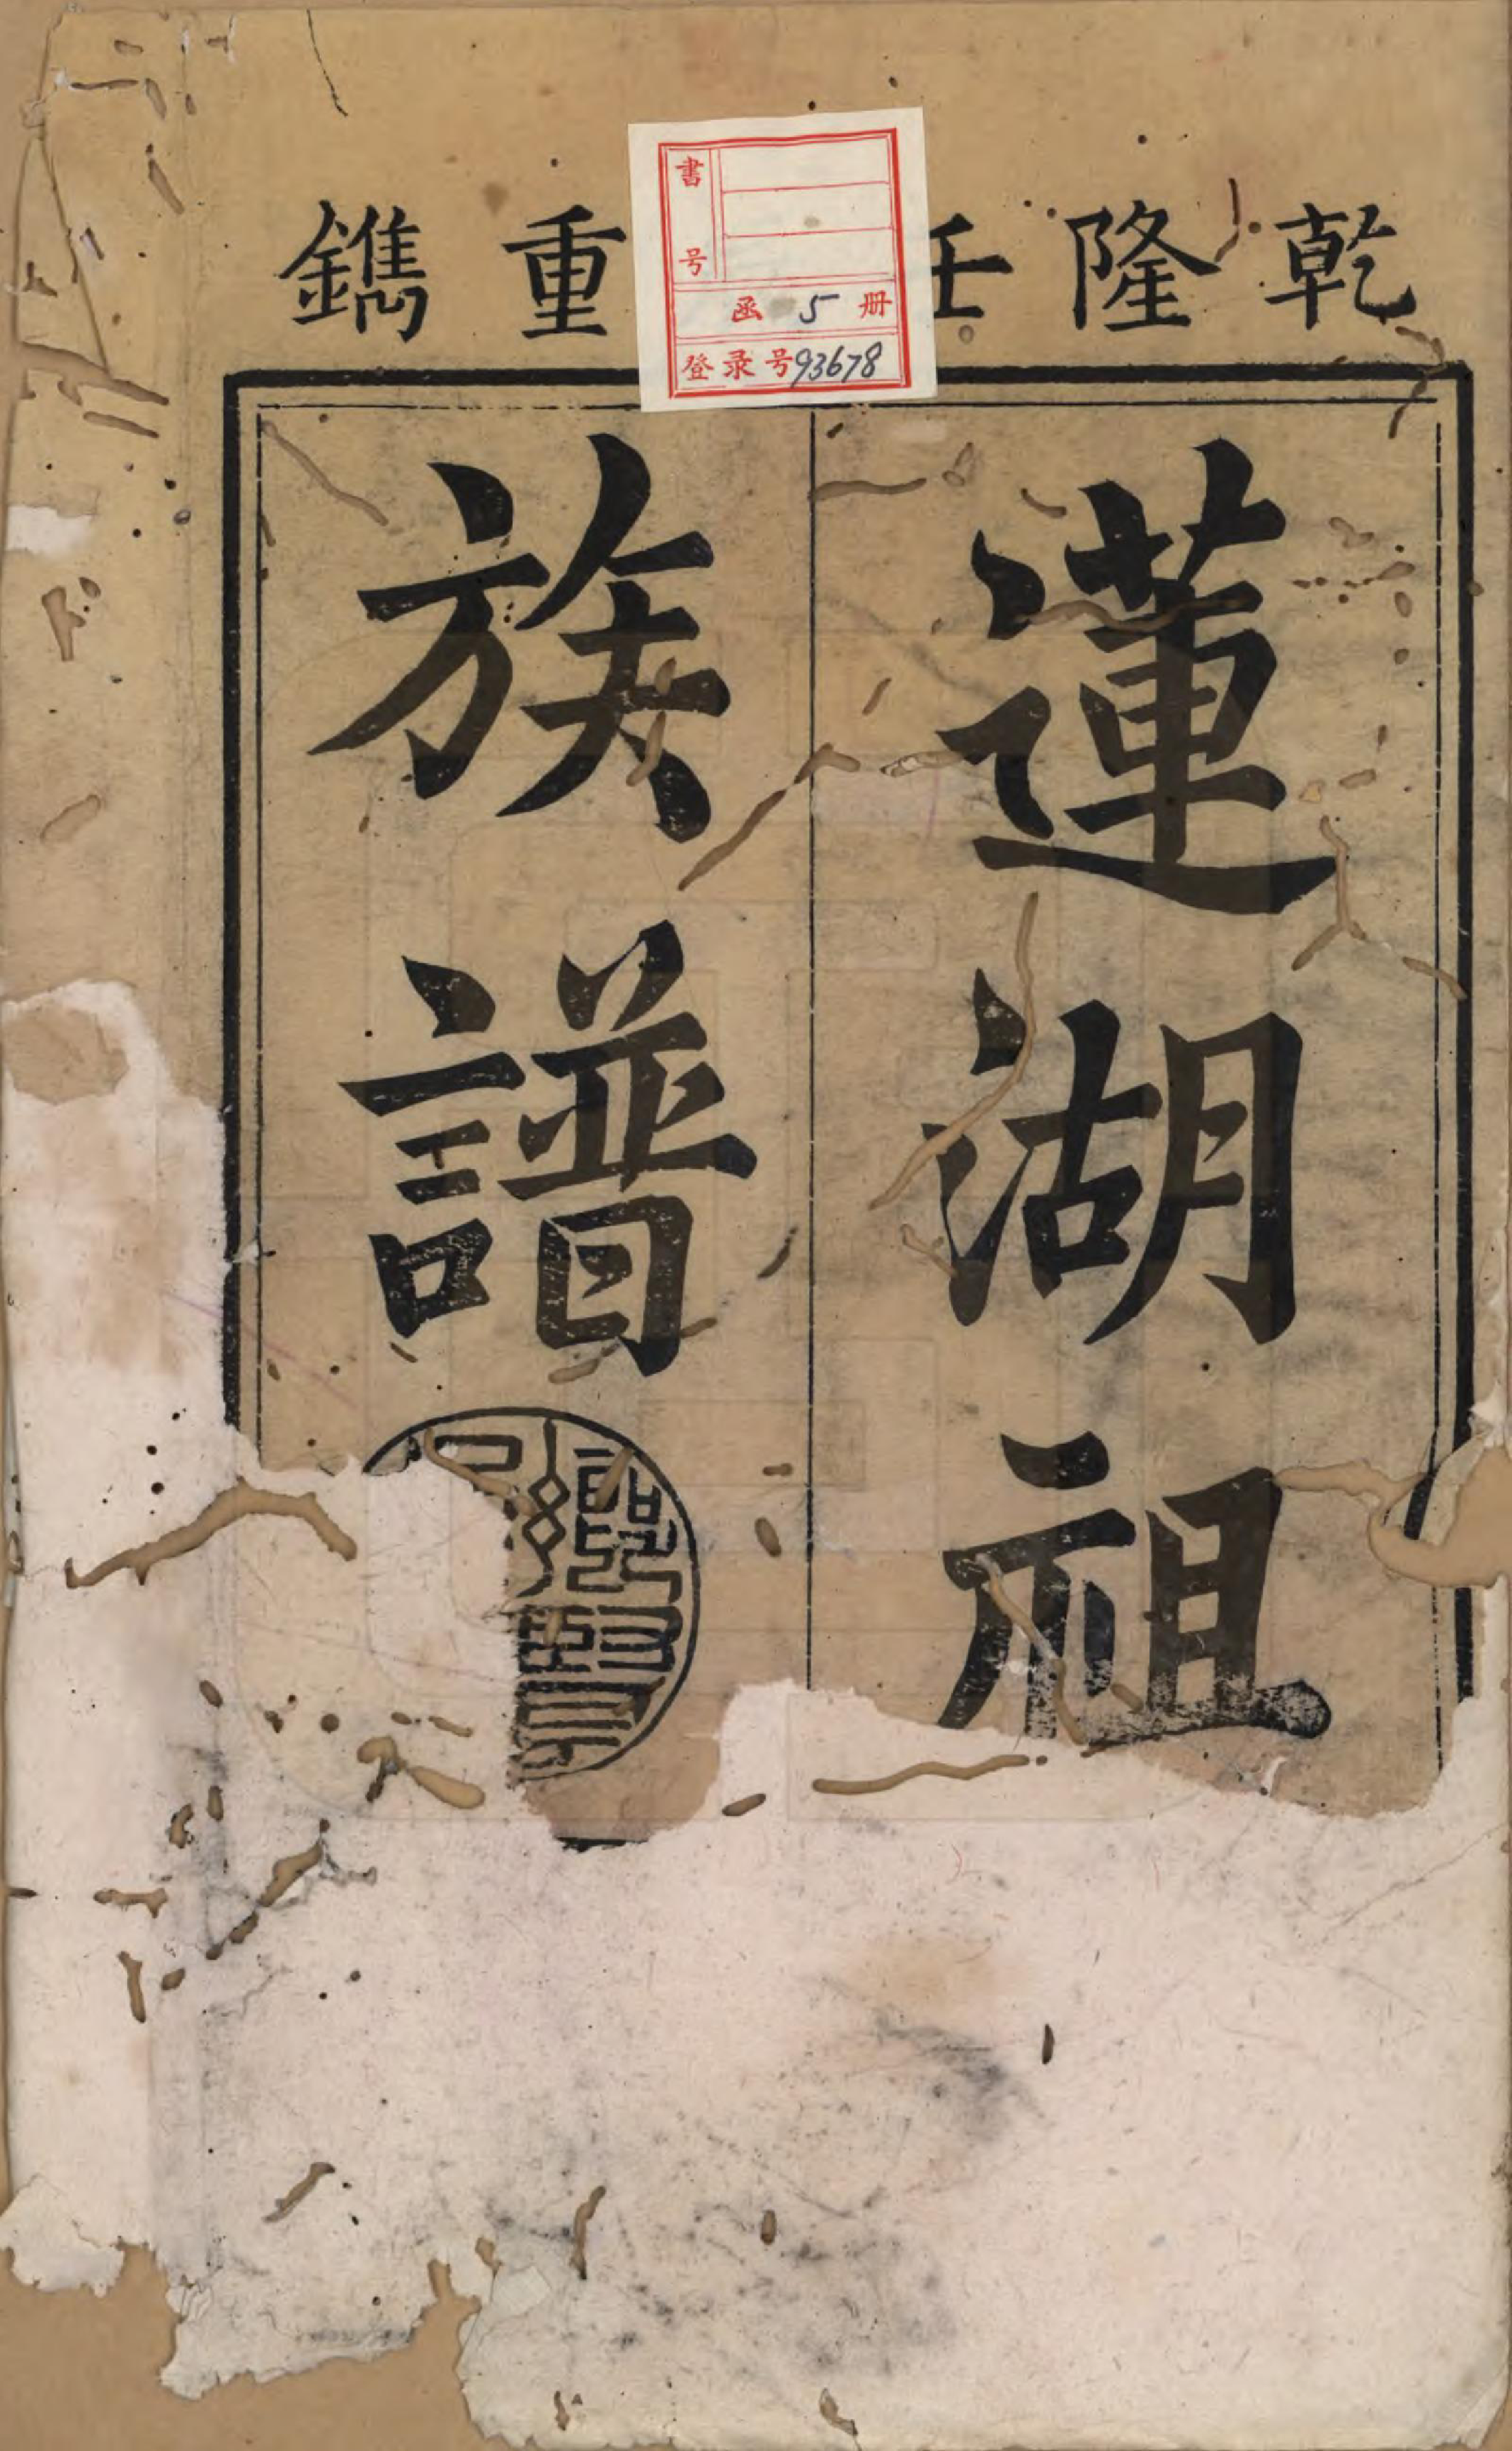 乾隆壬重鐫
蓮湖祖
族譜
書号
函 5 册
登录号93678